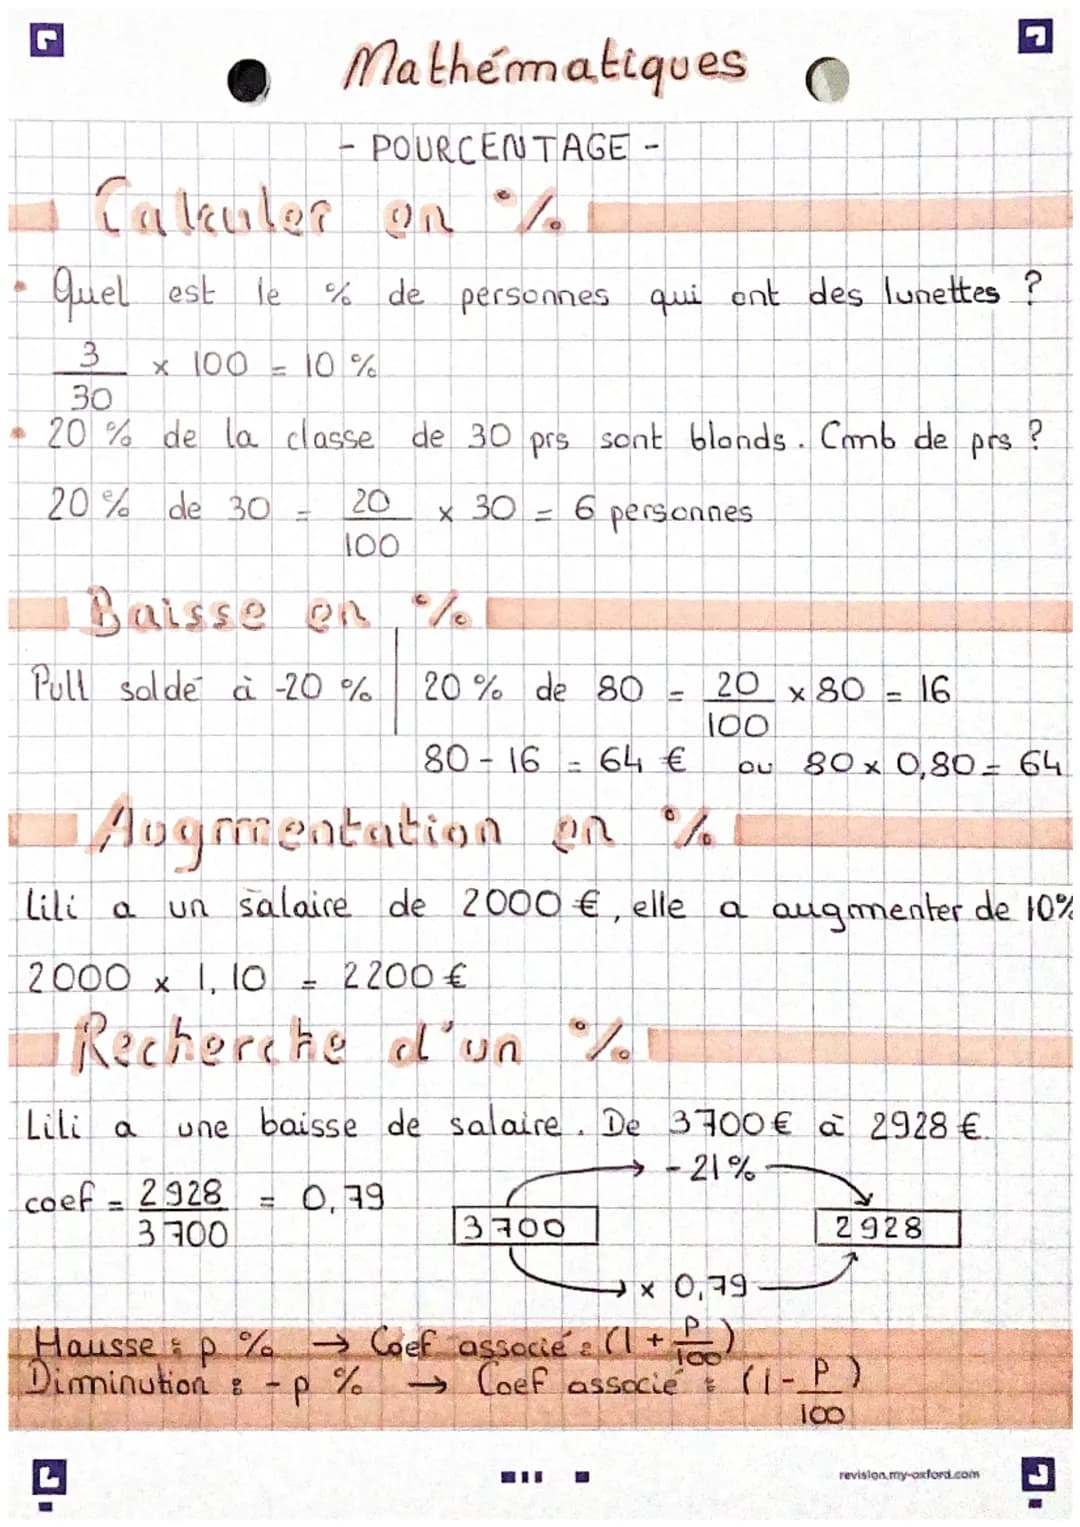 Mathématiques
- POURCENTAGE -
Calculer en %
• Quel est le % de personnes qui ont des lunettes ?
3/30 x 100 = 10 %
• 20 % de la classe de 30 prs sont blonds. Cmb de prs ?
20 % de 30 = 20/100 x 30 = 6 personnes
Baisse en %
Pull solde à -20 % | 20 % de 80 = 20/100 x 80 = 16
80 - 16 = 64 € ou 80 x 0,80 = 64
Augmentation en %
Lili a un salaire de 2000 €, elle a augmenter de 10%
2000 x 1,10 = 2200 €
Recherche d'un %
Lili a une baisse de salaire. De 3700 € à 2928 €.
- 21 %
coef = 2928/3700 = 0,79
3700
2928
x 0,79
Hausse : p % → Coef associé : (1 + P/100)
Diminution : - p % → Coef associé : (1 - P/100)
revision.my-oxford.com